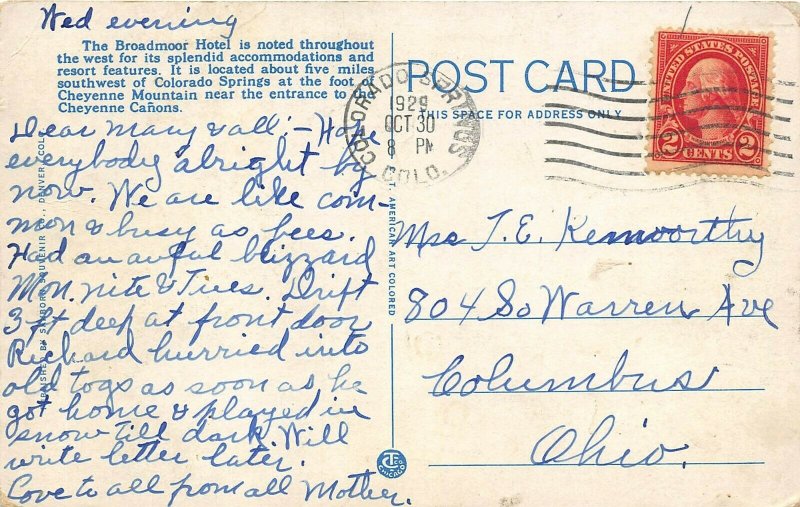 Wed evening
The Broadmoor Hotel is noted throughout
the west for its splendid accommodations and
resort features. It is located about five miles
southwest of Colorado Springs at the foot of
Cheyenne Mountain near the entrance to the
Cheyenne Cañons.
Dear Mary & all:- Hope
everybody alright by
now. We are like com-
mon & busy as bees.
Had an awful blizzard
Mon. nite & Tues. Drift
3 ft deep at front door
Richard hurried into
old togs as soon as he
got home & played in
snow till dark. Will
write letter later.
Love to all from all Mother.
POST CARD
THIS SPACE FOR ADDRESS ONLY
COLORADO SPRINGS
1929
OCT 30
8 PM
COLO.
UNITED STATES POSTAGE
2 2
CENTS
Mrs J. E. Kenworthy
804 So Warren Ave
Columbus
Ohio.
AMERICAN ART COLORED
DENVER, COLO.
CHICAGO